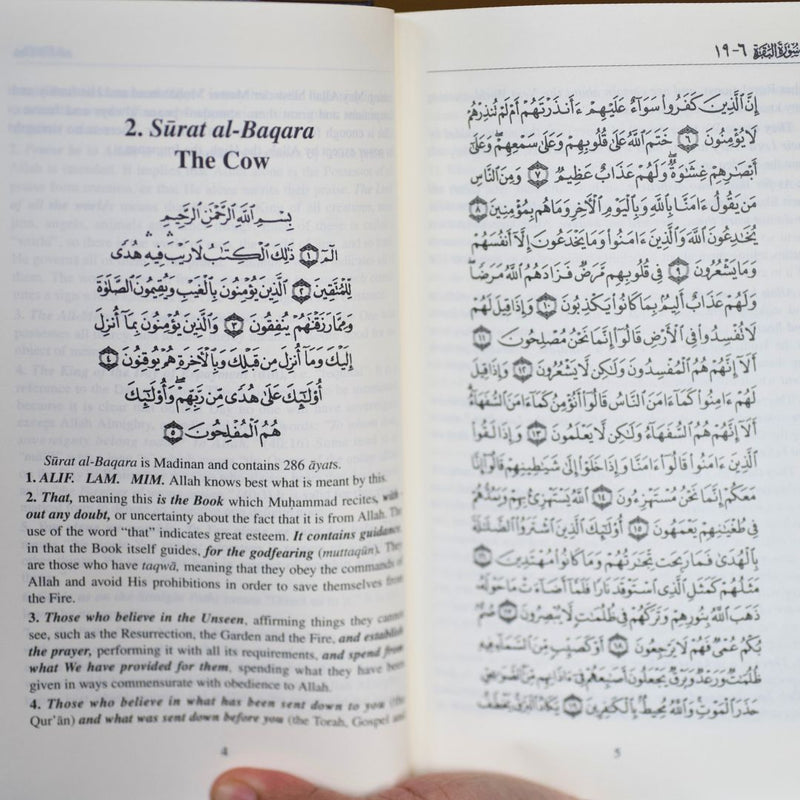 2. Sūrat al-Baqara
The Cow
بِسْمِ اللَّهِ الرَّحْمَٰنِ الرَّحِيمِ
الٓمٓ ١ ذَٰلِكَ الْكِتَٰبُ لَا رَيْبَ فِيهِ هُدًى
لِّلْمُتَّقِينَ ٢ الَّذِينَ يُؤْمِنُونَ بِالْغَيْبِ وَيُقِيمُونَ الصَّلَوٰةَ
وَمِمَّا رَزَقْنَٰهُمْ يُنفِقُونَ ٣ وَالَّذِينَ يُؤْمِنُونَ بِمَآ أُنزِلَ
إِلَيْكَ وَمَآ أُنزِلَ مِن قَبْلِكَ وَبِالْآخِرَةِ هُمْ يُوقِنُونَ ٤
أُوْلَٰٓئِكَ عَلَىٰ هُدًى مِّن رَّبِّهِمْ وَأُوْلَٰٓئِكَ
هُمُ الْمُفْلِحُونَ ٥
Sūrat al-Baqara is Madinan and contains 286 āyats.
1. ALIF. LAM. MIM. Allah knows best what is meant by this.
2. That, meaning this is the Book which Muḥammad recites, with
out any doubt, or uncertainty about the fact that it is from Allah. The
use of the word “that” indicates great esteem. It contains guidance
in that the Book itself guides, for the godfearing (muttaqūn). They
are those who have taqwā, meaning that they obey the commands of
Allah and avoid His prohibitions in order to save themselves from
the Fire.
3. Those who believe in the Unseen, affirming things they cannot
see, such as the Resurrection, the Garden and the Fire, and establish
the prayer, performing it with all its requirements, and spend from
what We have provided for them, spending what they have been
given in ways commensurate with obedience to Allah.
4. Those who believe in what has been sent down to you (the
Qur’ān) and what was sent down before you (the Torah, Gospel and
4
سورة البقرة ٦-١٩
إِنَّ الَّذِينَ كَفَرُوا سَوَآءٌ عَلَيْهِمْ ءَأَنذَرْتَهُمْ أَمْ لَمْ تُنذِرْهُمْ
لَا يُؤْمِنُونَ ٦ خَتَمَ اللَّهُ عَلَىٰ قُلُوبِهِمْ وَعَلَىٰ سَمْعِهِمْ وَعَلَىٰٓ
أَبْصَٰرِهِمْ غِشَٰوَةٌ وَلَهُمْ عَذَابٌ عَظِيمٌ ٧ وَمِنَ النَّاسِ
مَن يَقُولُ ءَامَنَّا بِاللَّهِ وَبِالْيَوْمِ الْآخِرِ وَمَا هُم بِمُؤْمِنِينَ ٨
يُخَٰدِعُونَ اللَّهَ وَالَّذِينَ ءَامَنُوا وَمَا يَخْدَعُونَ إِلَّآ أَنفُسَهُمْ
وَمَا يَشْعُرُونَ ٩ فِى قُلُوبِهِم مَّرَضٌ فَزَادَهُمُ اللَّهُ مَرَضًا
وَلَهُمْ عَذَابٌ أَلِيمٌۢ بِمَا كَانُوا يَكْذِبُونَ ١٠ وَإِذَا قِيلَ لَهُمْ
لَا تُفْسِدُوا فِى الْأَرْضِ قَالُوٓا إِنَّمَا نَحْنُ مُصْلِحُونَ ١١
أَلَآ إِنَّهُمْ هُمُ الْمُفْسِدُونَ وَلَٰكِن لَّا يَشْعُرُونَ ١٢ وَإِذَا قِيلَ
لَهُمْ ءَامِنُوا كَمَآ ءَامَنَ النَّاسُ قَالُوٓا أَنُؤْمِنُ كَمَآ ءَامَنَ السُّفَهَآءُ
أَلَآ إِنَّهُمْ هُمُ السُّفَهَآءُ وَلَٰكِن لَّا يَعْلَمُونَ ١٣ وَإِذَا لَقُوا
الَّذِينَ ءَامَنُوا قَالُوٓا ءَامَنَّا وَإِذَا خَلَوْا إِلَىٰ شَيَٰطِينِهِمْ قَالُوٓا إِنَّا
مَعَكُمْ إِنَّمَا نَحْنُ مُسْتَهْزِءُونَ ١٤ اللَّهُ يَسْتَهْزِئُ بِهِمْ وَيَمُدُّهُمْ
فِى طُغْيَٰنِهِمْ يَعْمَهُونَ ١٥ أُوْلَٰٓئِكَ الَّذِينَ اشْتَرَوُا الضَّلَٰلَةَ
بِالْهُدَىٰ فَمَا رَبِحَت تِّجَٰرَتُهُمْ وَمَا كَانُوا مُهْتَدِينَ ١٦
مَثَلُهُمْ كَمَثَلِ الَّذِى اسْتَوْقَدَ نَارًا فَلَمَّآ أَضَآءَتْ مَا حَوْلَهُ
ذَهَبَ اللَّهُ بِنُورِهِمْ وَتَرَكَهُمْ فِى ظُلُمَٰتٍ لَّا يُبْصِرُونَ ١٧ صُمٌّۢ
بُكْمٌ عُمْىٌ فَهُمْ لَا يَرْجِعُونَ ١٨ أَوْ كَصَيِّبٍ مِّنَ السَّمَآءِ فِيهِ
ظُلُمَٰتٌ وَرَعْدٌ وَبَرْقٌ يَجْعَلُونَ أَصَٰبِعَهُمْ فِىٓ ءَاذَانِهِم مِّنَ الصَّوَٰعِقِ
حَذَرَ الْمَوْتِ وَاللَّهُ مُحِيطٌۢ بِالْكَٰفِرِينَ ١٩ يَكَادُ الْبَرْقُ يَخْطَفُ
5